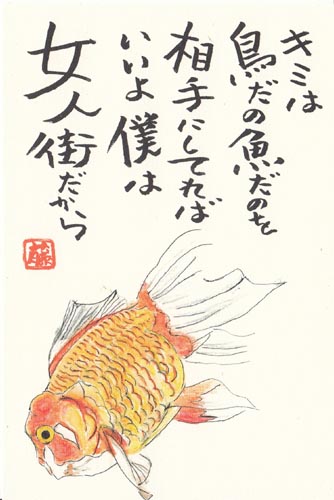 キミは
鳥だの魚だのを
相手にしてれば
いいよ僕は
女人街だから
藤